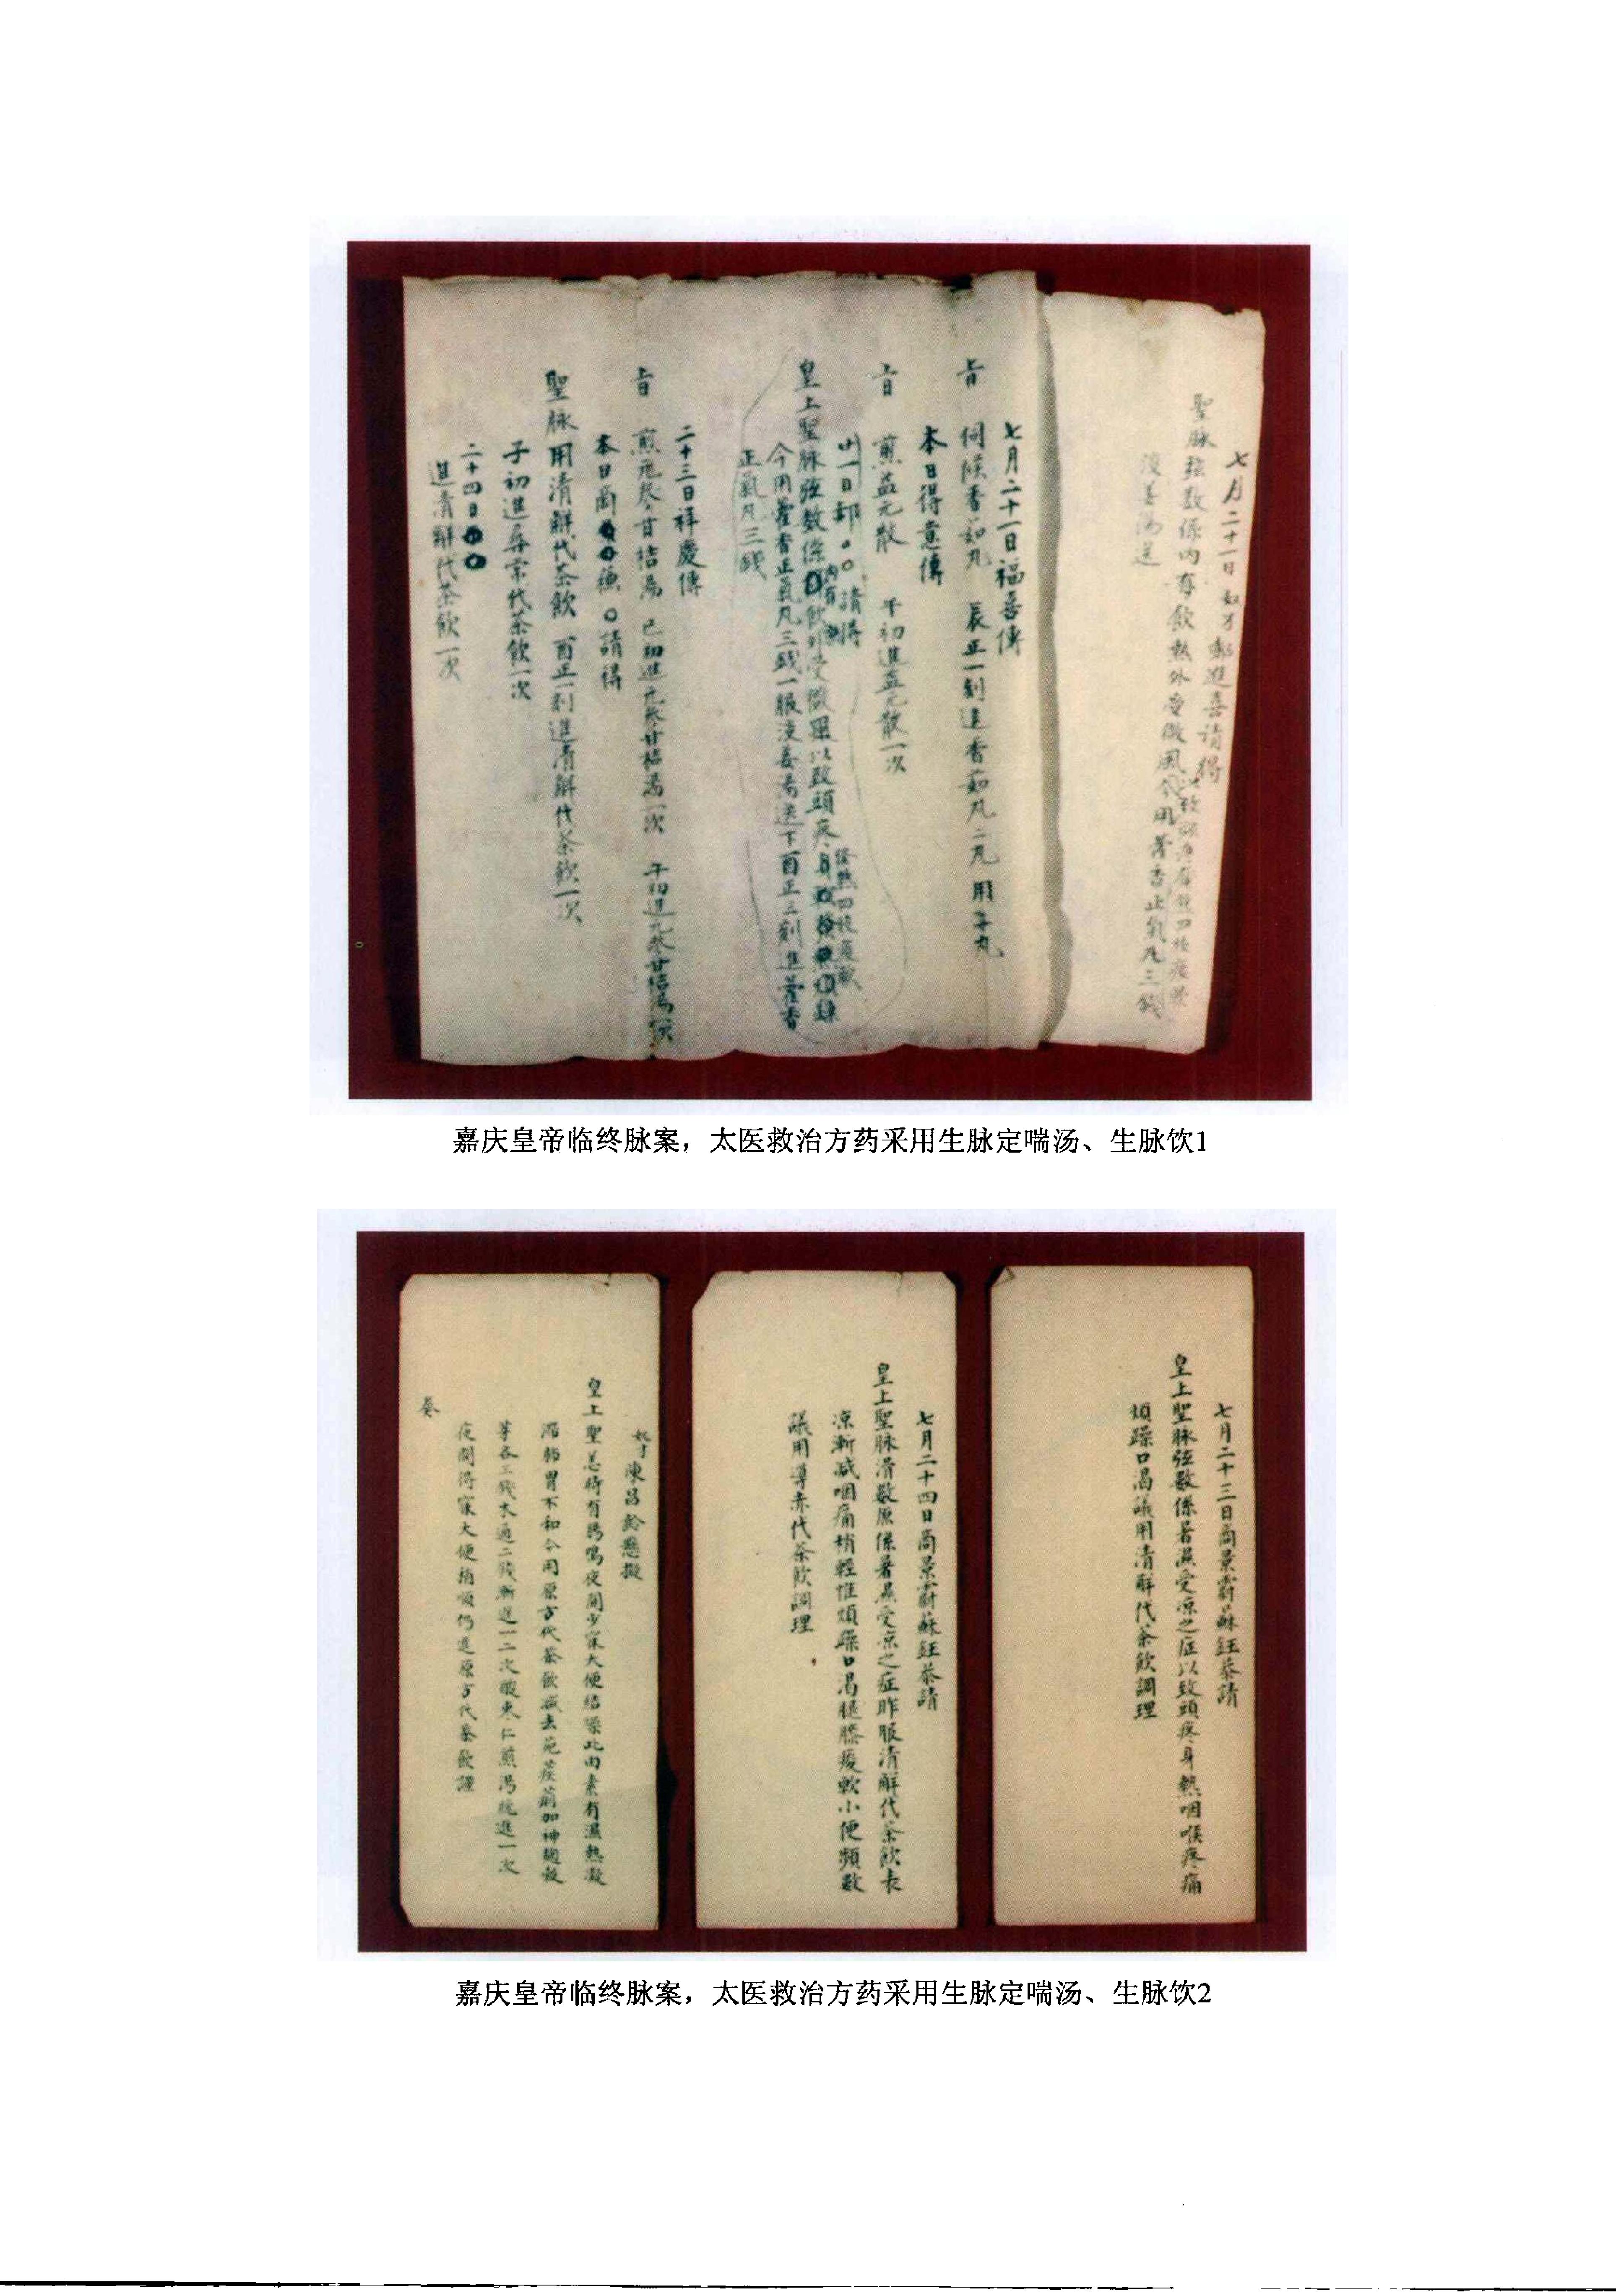 七月二十一日奴才郝進喜請得
聖脉弦数係内有飲熱外受微風以致頭疼身熱四肢痠
今用藿香正氣丸三錢
淡姜湯送
七月二十一日福喜傳
旨 伺候香茹丸 辰正一刻進香茹丸二丸用
本日得意傳
旨 煎益元散 午初進益元散一次
廿一日郝 請得
皇上聖脉弦数係内有飲外受微風以致頭疼身
今用藿香正氣丸三錢一服淡姜湯送下酉正三刻進藿香
正氣丸三錢
二十三日祥慶傳
旨 煎元參甘桔湯 巳初進元參甘桔湯一次 午初進元參甘桔湯一次
本日商 請得
聖脉用清解代茶飲 酉正一刻進清解代茶飲一次
子初進導赤代茶飲一次
二十四日
進清解代茶飲一次
嘉庆皇帝临终脉案，太医救治方药采用生脉定喘汤、生脉饮1
七月二十三日商景霨蘇鈺恭請
皇上聖脉弦数係暑濕受凉之症以致頭疼身熱咽喉疼痛
煩躁口渴議用清解代茶飲調理
七月二十四日商景霨蘇鈺恭請
皇上聖脉滑數原係暑濕受凉之症昨服清解代茶飲表
凉漸減咽痛稍輕惟煩躁口渴腿膝痠軟小便頻數
議用導赤代茶飲調理
奴才陳昌齡懇擬
皇上聖恙待有腸鳴夜間少寐大便結燥此由素有濕熱凝
滯肠胃不和今用原方代茶飲減去 加神麯穀
芽各三錢木通二錢漸進一二次酸棗仁煎湯晚進一次
夜間得寐大便稍順仍進原方代茶飲謹
奏
嘉庆皇帝临终脉案，太医救治方药采用生脉定喘汤、生脉饮2